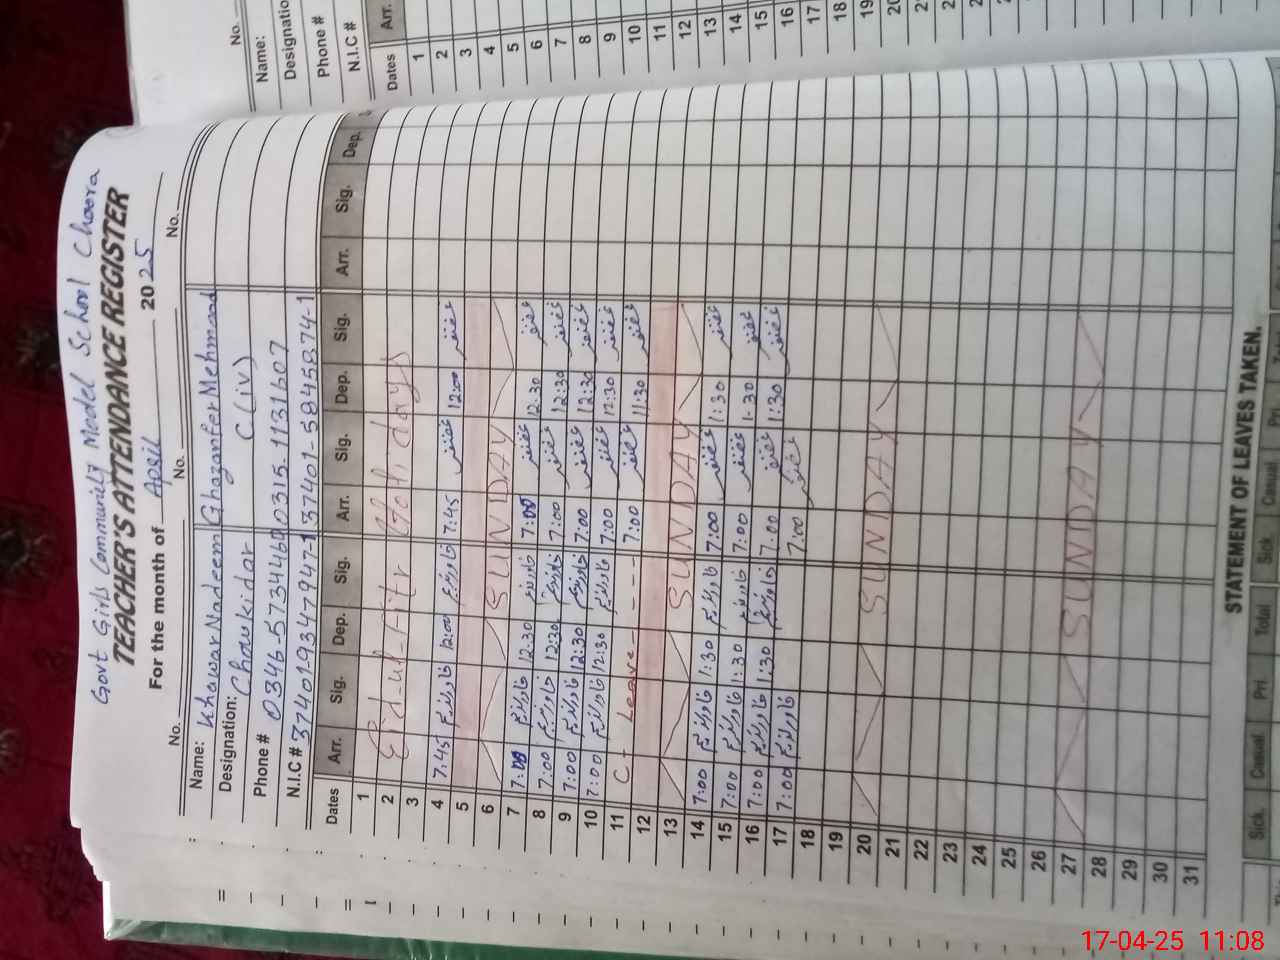 Govt Girls Community Model School Choora
TEACHER'S ATTENDANCE REGISTER
For the month of April 2025
No. No. No.
Name: Khawar Nadeem Ghazanfer Mehmood
Designation: Chowkidar C(iv)
Phone # 0346-5734460 0315-1131607
N.I.C # 37401-9347947-1 37401-5845874-1
Dates Arr. Sig. Dep. Sig. Arr. Sig. Dep. Sig. Arr. Sig. Dep.
1
2 Eid-ul-Fitr Holidays
3
4 7:45 خاورندیم 12:00 خاورندیم 7:45 غضنفر 12:00 غضنفر
5
6 SUNDAY
7 7:00 خاورندیم 12:30 خاورندیم 7:00 غضنفر 12:30 غضنفر
8 7:00 خاورندیم 12:30 خاورندیم 7:00 غضنفر 12:30 غضنفر
9 7:00 خاورندیم 12:30 خاورندیم 7:00 غضنفر 12:30 غضنفر
10 7:00 خاورندیم 12:30 خاورندیم 7:00 غضنفر 12:30 غضنفر
11 C - Leave - - - - 7:00 غضنفر 11:30 غضنفر
12
13 SUNDAY
14 7:00 خاورندیم 1:30 خاورندیم 7:00 غضنفر 1:30 غضنفر
15 7:00 خاورندیم 1:30 خاورندیم 7:00 غضنفر 1:30 غضنفر
16 7:00 خاورندیم 1:30 خاورندیم 7:00 غضنفر 1:30 غضنفر
17 7:00 خاورندیم 7:00 غضنفر
18
19
20 SUNDAY
21
22
23
24
25
26
27 SUNDAY
28
29
30
31
STATEMENT OF LEAVES TAKEN.
Sick Casual Pri. Total Sick Casual Pri.
No.
Name:
Designatio
Phone #
N.I.C #
Dates Arr.
1
2
3
4
5
6
7
8
9
10
11
12
13
14
15
16
17
18
19
20
17-04-25 11:08